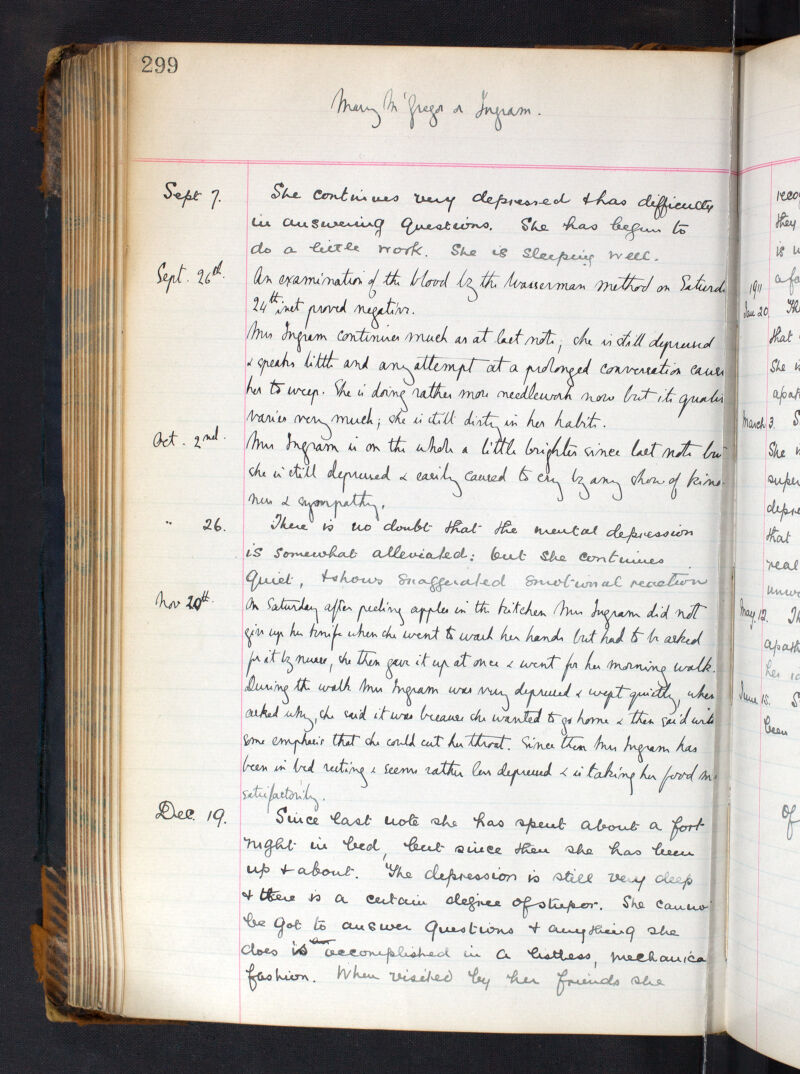 299
Mary McGregor or Ingram.
Sept 7. She continues very depressed & has difficulty
in answering questions. She has begun to
do a little work. She is sleeping well.
Sept. 26th. An examination of the blood by the Wasserman method on Saturd
24th inst proved negative.
Mrs Ingram continues much as at last note; she is still depressed
& speaks little and any attempt at a prolonged conversation causes
her to weep. She is doing rather more needlework now but its quality
varies very much; she is still dirty in her habits.
Oct. 2nd. Mrs Ingram is on the whole a little brighter since last note but
she is still depressed & easily caused to cry by any show of kind-
ness & sympathy.
" 26. There is no doubt that the mental depression
is somewhat alleviated: but she continues
quiet, & shows exaggerated emotional reaction
Nov 20th. On Saturday after peeling apples in the kitchen Mrs Ingram did not
give up her knife when she went to wash her hands but had to be asked
for it by nurse, she then gave it up at once & went for her morning walk.
During the walk Mrs Ingram was very depressed & wept quietly, when
asked why, she said it was because she wanted to go home & then said with
some emphasis that she could cut her throat. Since then Mrs Ingram has
been in bed resting & seems rather less depressed & is taking her food
satisfactorily.
Dec. 19. Since last note she has spent about a fort
night in bed, but since then she has been
up & about. The depression is still very deep
& there is a certain degree of stupor. She cannot
be got to answer questions & anything she
does is accomplished in a listless, mechanica
fashion. When visited by her friends she
reco
they
is u
a fa
1911
Jan 20. Th
that
She is
apat
March 3. S
She
super
depre
that
real
unwo
May 12. Th
apath
her
June 15. S
been
of